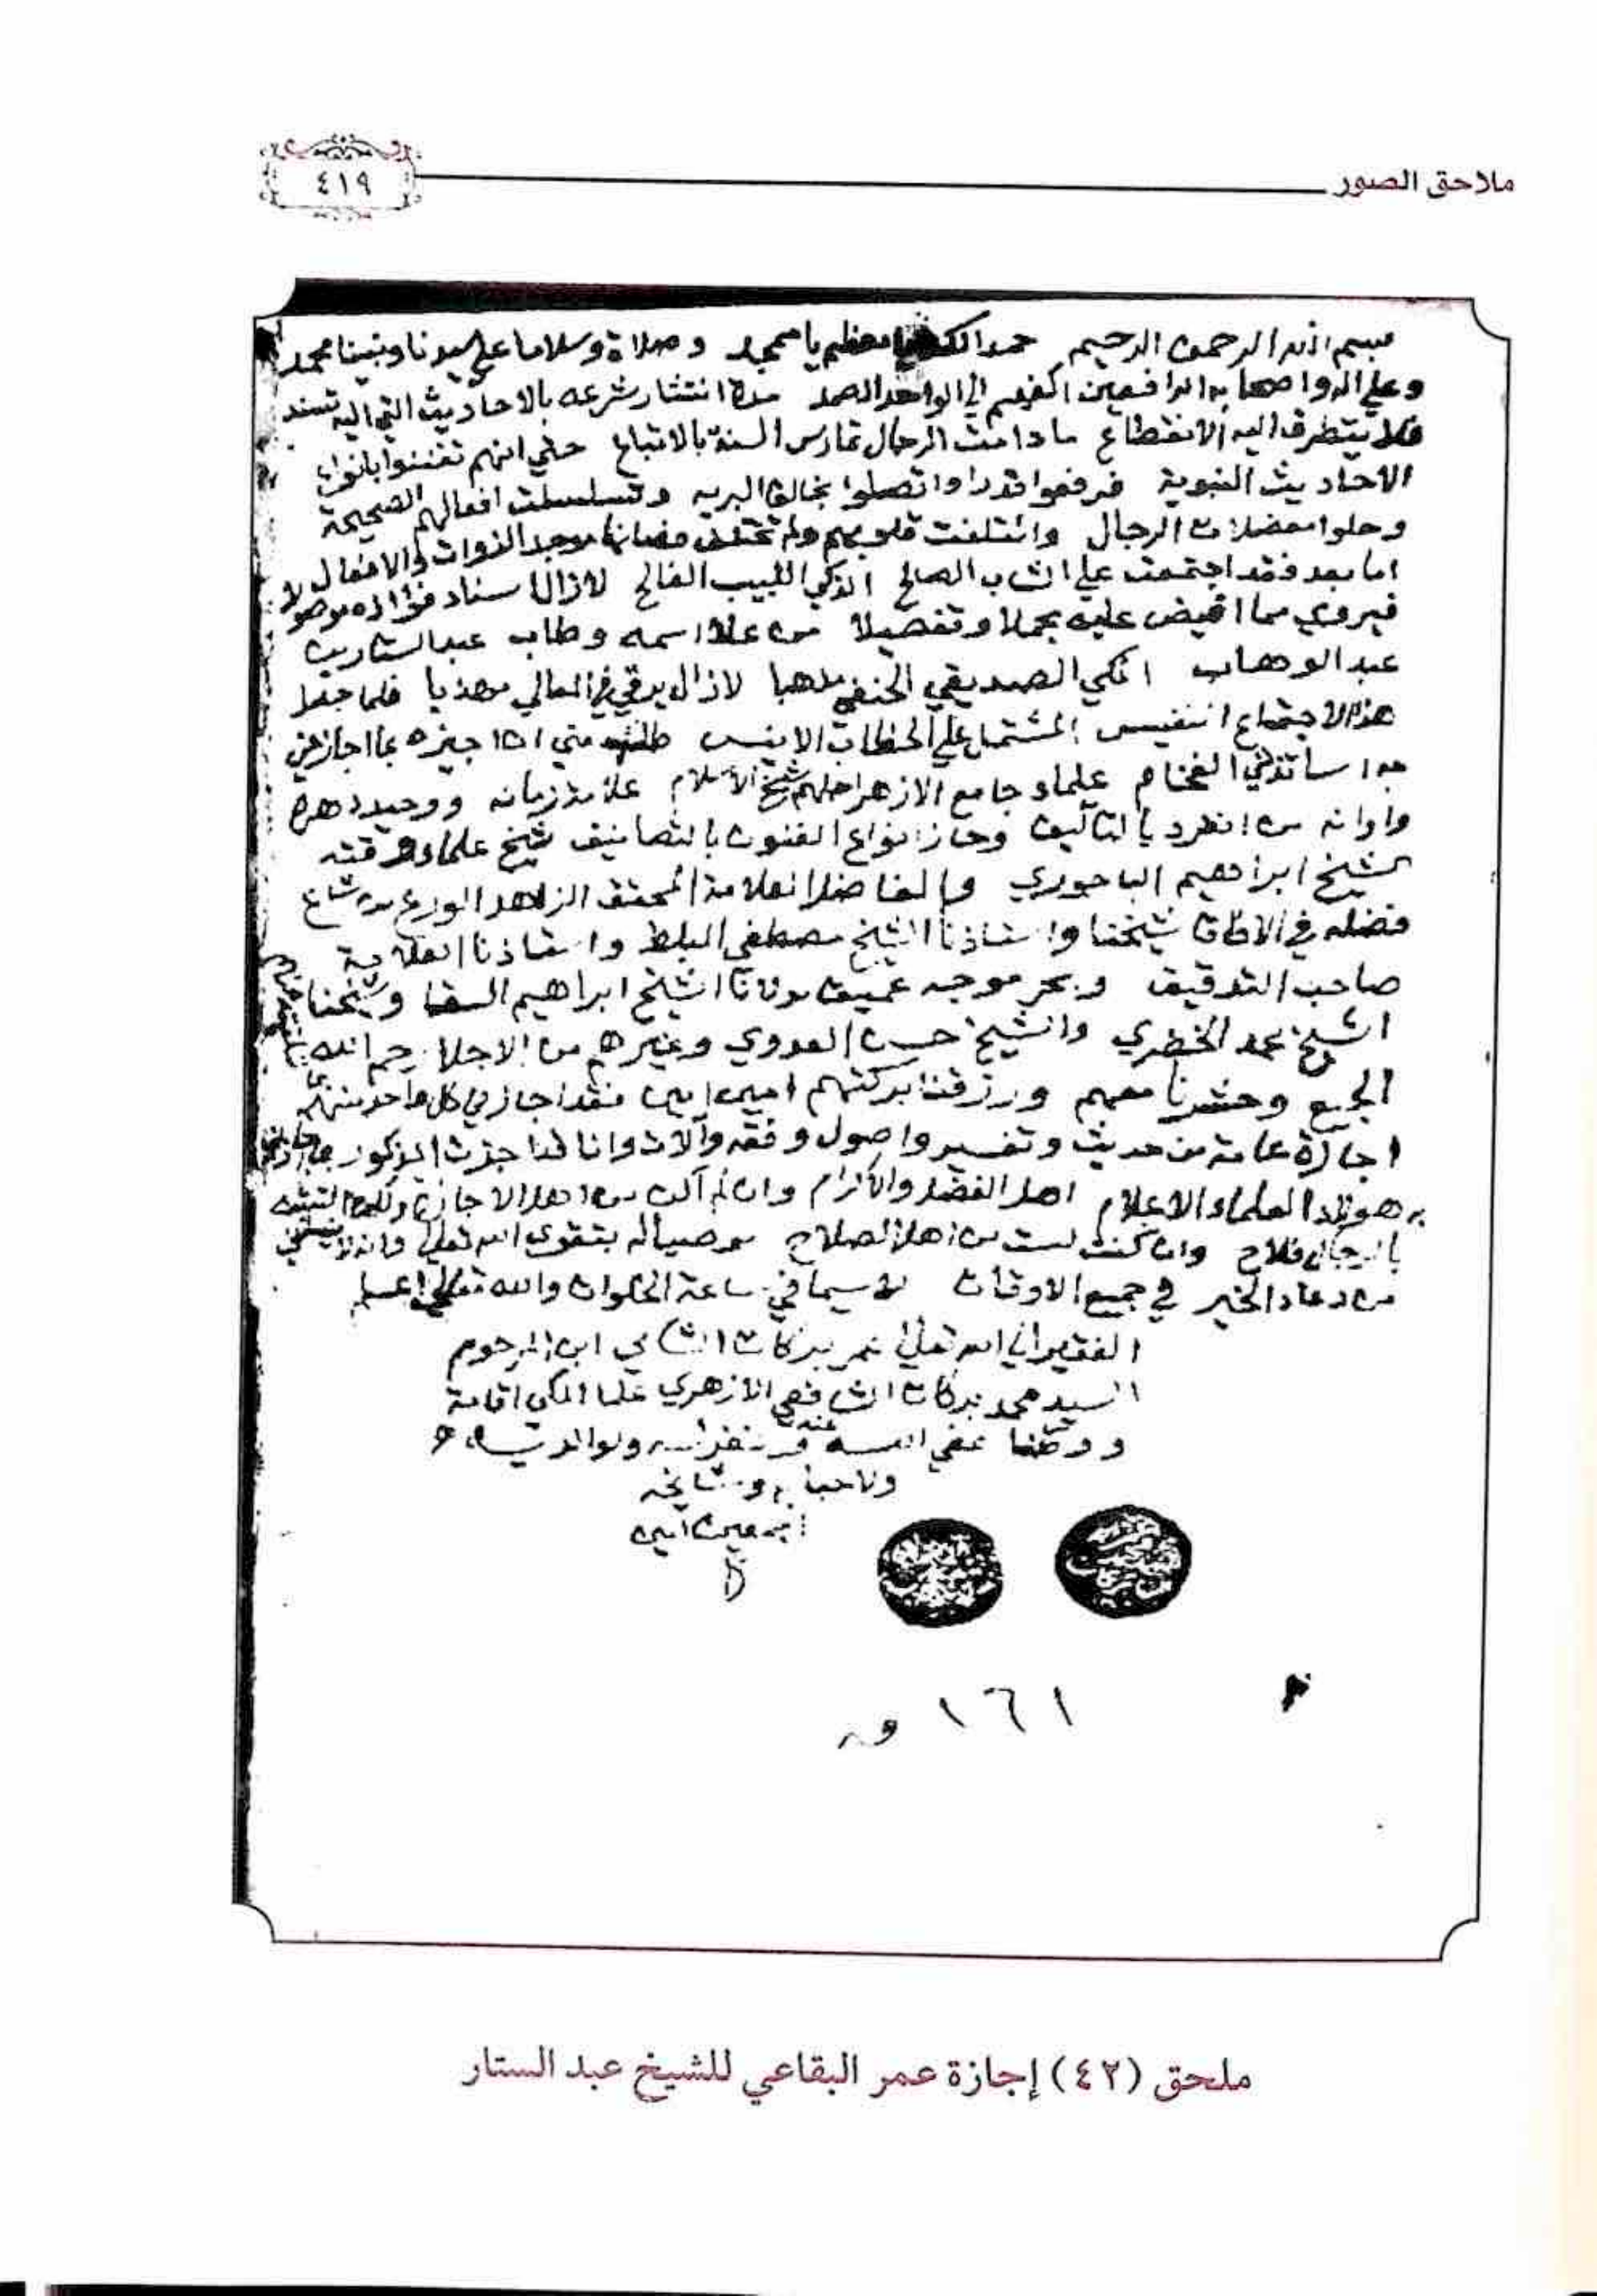 ملاحق الصور
٤١٩
بسم الله الرحمن الرحيم حمدا لك يا معظم يا ممجد وصلاة وسلاما على سيدنا ونبينا محمد
وعلى اله واصحابه الرافعين اكفهم الى الواحد الصمد مدة انتشار شرعه بالاحاديث التي اليه تسند
فلا يتطرق اليه الانقطاع ما دامت الرجال تمارس السنة بالاتباع حتى انهم تفننوا بانواع
الاحاديث النبوية فرفعوا قدرا واتصلوا بخالق البريه وتسلسلت افعالهم الصحيحة
وحلوا معضلات الرجال وائتلفت قلوبهم ولم تختلف موجد الذوات والافعال
اما بعد فقد اجتمعت على الشاب الصالح الذكي اللبيب الفالح لازال اسناد فؤاده موصولا
فيروي مما افيض عليه مجملا وتفصيلا من علا اسمه وطاب عبد الستار بن
عبد الوهاب المكي الصديقي الحنفي مذهبا لازال يرقي في المعالي مهذبا فلما حصل
هذا الاجتماع النفيس المشتمل على الخطاب الانيس طلب مني ان اجيزه بما اجازني
به اساتذتي الفخام علماء جامع الازهر اجلهم شيخ الاسلام علامة زمانه ووحيد دهره
واوانه من انفرد بالتآليف وحاز انواع الفنون بالتصانيف شيخ علماء وقته
الشيخ ابراهيم الباجوري والفاضل العلامة المحقق الزاهد الورع من شاع
فضله في الافاق شيخنا واستاذنا الشيخ مصطفى المبلط واستاذنا العلامة
صاحب التدقيق وبحر موجه عميق مولانا الشيخ ابراهيم السقا وشيخنا
الشيخ محمد الخضري والشيخ حسن العدوي وغيرهم من الاجلا رحم الله
الجميع وحشرنا معهم ورزقنا بركتهم امين امين فقد اجازني كل واحد منهم
اجازة عامة من حديث وتفسير واصول وفقه وآلات وانا قد اجزت المذكور بما اجازني
به هؤلاء العلماء الاعلام اهل الفضل والاكرام وان لم اكن من اهل الاجازة ولكن التشبه
بالرجال فلاح وان كنت لست من اهل الصلاح موصيا له بتقوى الله تعالى وان لا ينسني
من دعاء الخير في جميع الاوقات لاسيما في ساعة الخلوات والله تعالى اعلم
الفقير الى الله تعالى عمر بركات الشامي ابن المرحوم
السيد محمد بركات الشافعي الازهري علما المكي اقامة
ووطنا عفي الله عنه وغفر له ولوالديه
ولاحبابه ومشايخه
اجمعين امين
١٦١
ملحق (٤٢) إجازة عمر البقاعي للشيخ عبد الستار